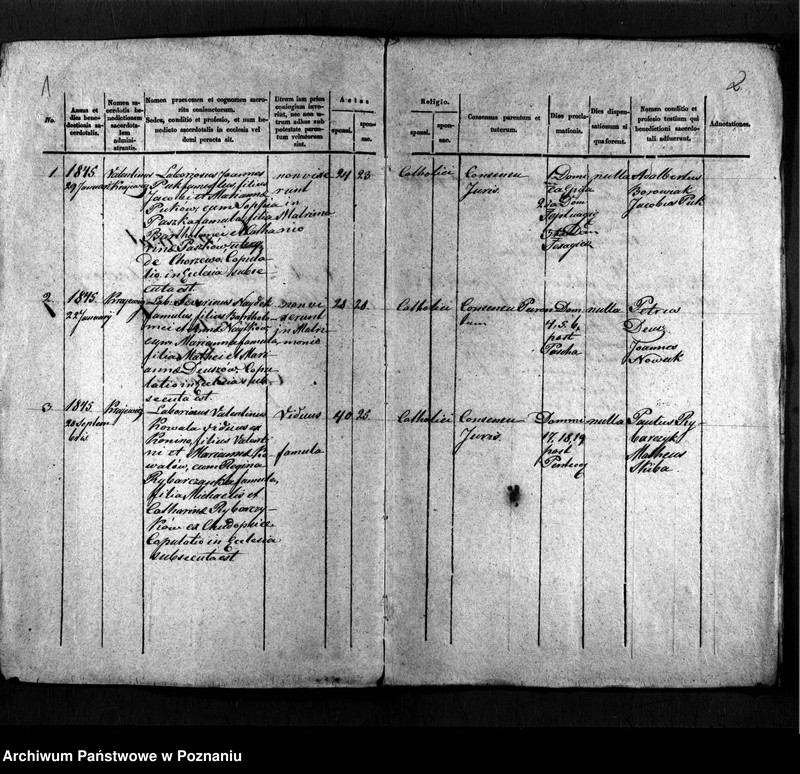 1
2
No.
Annus et
dies bene-
dictionis sa-
cerdotalis.
Nomen sa-
cerdotis be-
nedictionem
sacerdota-
lem
admini-
strantis.
Nomen praenomen et cognomen sacro-
ritu conjunctorum.
Sedes, conditio et profesio, et num be-
nedictio sacerdotalis in ecclesia vel
domi peracta sit.
Utrum jam prius
conjugium inve-
rint, nec non u-
trum adhuc sub
potestate paren-
tum velintorum
sint.
Aetas
sponsi.
spon-
sae.
Religio.
sponsi.
spon-
sae.
Consensus parentum et
tutorum.
Dies procla-
mationis.
Dies dispen-
sationum si
quaforent.
Nomen conditio et
profesio testium qui
benedictioni sacerdo-
tali adfuerunt.
Adnotationes.
1.
1845
29 Januar
Valentinus
Krajewicz
Laboriosus Joannes
Puk famulus, filius
Jacobi et Marianna
Puków, cum Sophia
Paszka famula, filia
Bartholomei et Catha
rina Paszków
de Chorzewo. Copula
tio in Eclesia subse
cuta est.
non vixe
runt
in
Matrimo
nio
24
23
Catholici
Consensu
Juris.
1 Dom
2 da Dom
3 tia Dom
nulla
Adalbertus
Borowiak
Jacobus Puk
2.
1845.
22 January
Krajewicz
Lab. Severinus Kaydek
famulus filius Bartholo-
mei et Anna
cum Marianna famula,
filia Mathei et Mari
anna Deuszow. Copu
latio in Eclesia sub
secuta est
non vi
xerunt
in Matri
monio
24
24
Catholici
Consensu Paren
tum
Dom
4. 5. 6.
post
Pascha
nulla
Petrus
Deuz
Joannes
Nowak
3.
1845.
20 Septem
bris
Krajewicz
Laboriosus Valentinus
Kowala viduus ex
Konino, filius Valenti
ni et Marianna Ko
walów, cum Regina
Rybarczanka famula,
filia Michaelis et
Catharina Rybarczy-
ków ex Chudopsice
Copulatio in Eclesia
subsecuta est
Viduus
famula
40
25.
Catholici
Consensu
Juris.
Domini
17. 18. 19
post
Pentecos
nulla
Paulus Ry-
barczyk
Matheus
Skiba.
Archiwum Państwowe w Poznaniu